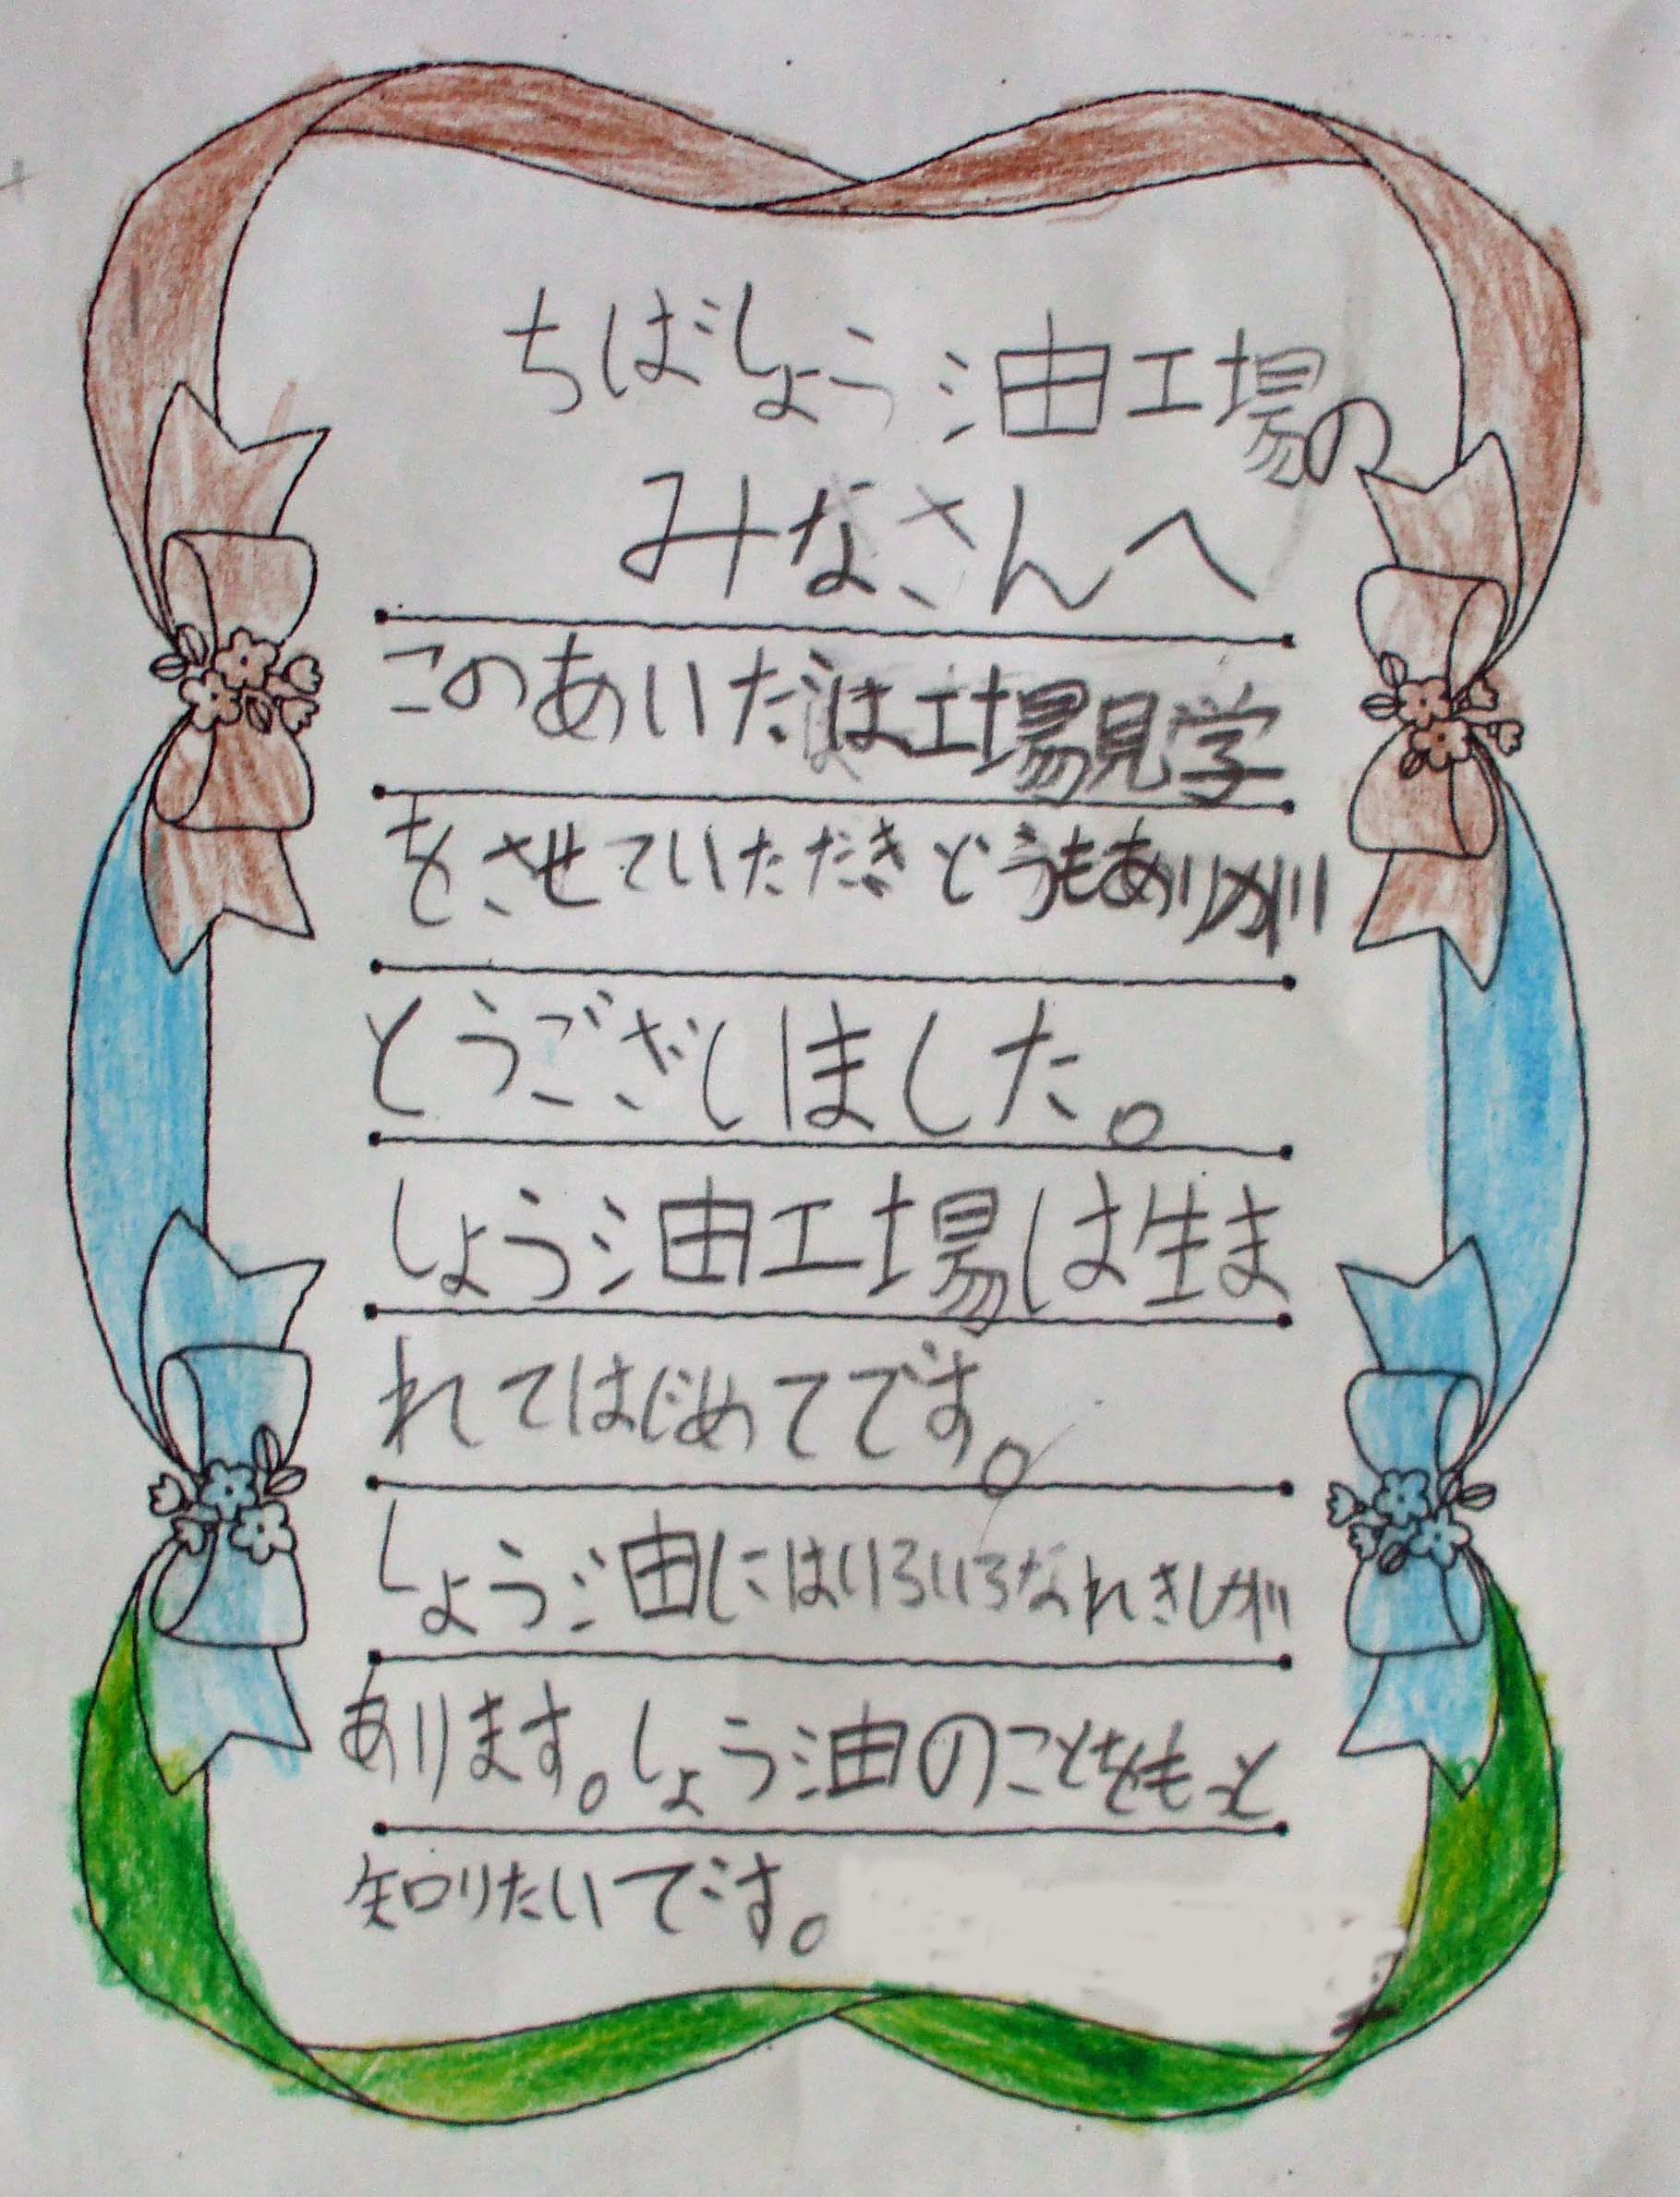 ちばしょう油工場の
みなさんへ
このあいだは工場見学
をさせていただきどうもありが
とうございました。
しょう油工場は生ま
れてはじめてです。
しょう油にはいろいろなれきしが
あります。しょう油のことをもっと
知りたいです。